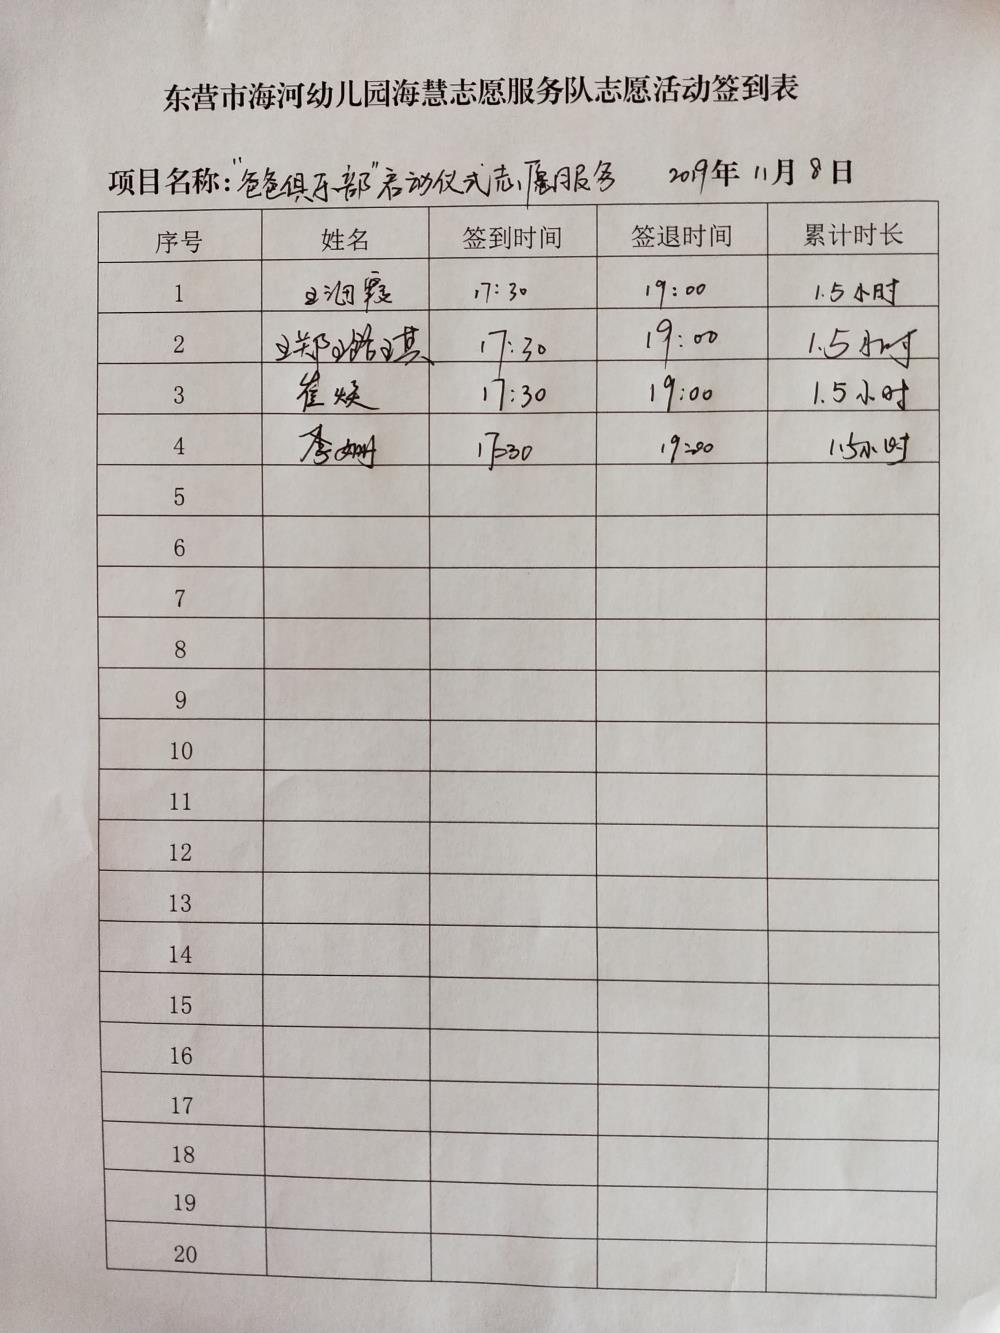 东营市海河幼儿园海慧志愿服务队志愿活动签到表
项目名称:"爸爸俱乐部"启动仪式志愿服务 2019年 11月 8日
序号 姓名 签到时间 签退时间 累计时长
1 王汩霞 17:30 19:00 1.5小时
2 王郑王路琪 17:30 19:00 1.5小时
3 崔焕 17:30 19:00 1.5小时
4 李姗 17:30 19:00 1.5小时
5
6
7
8
9
10
11
12
13
14
15
16
17
18
19
20